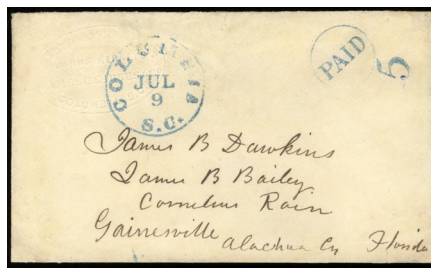 COLUMBIA
JUL
9
S.C.
PAID
5
James B Dawkins
James B Bailey
Cornelius Rain
Gainesville Alachua Co Florida